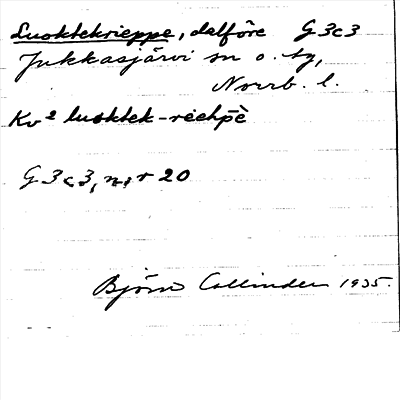 Luoktekrieppe, dalföre G 3c3
Jukkasjärvi sn o. tg,
Norrb. l.
Kv² luoktek-rèehpḕ
G 3c3, n, r 20
Björn Collinder 1935.